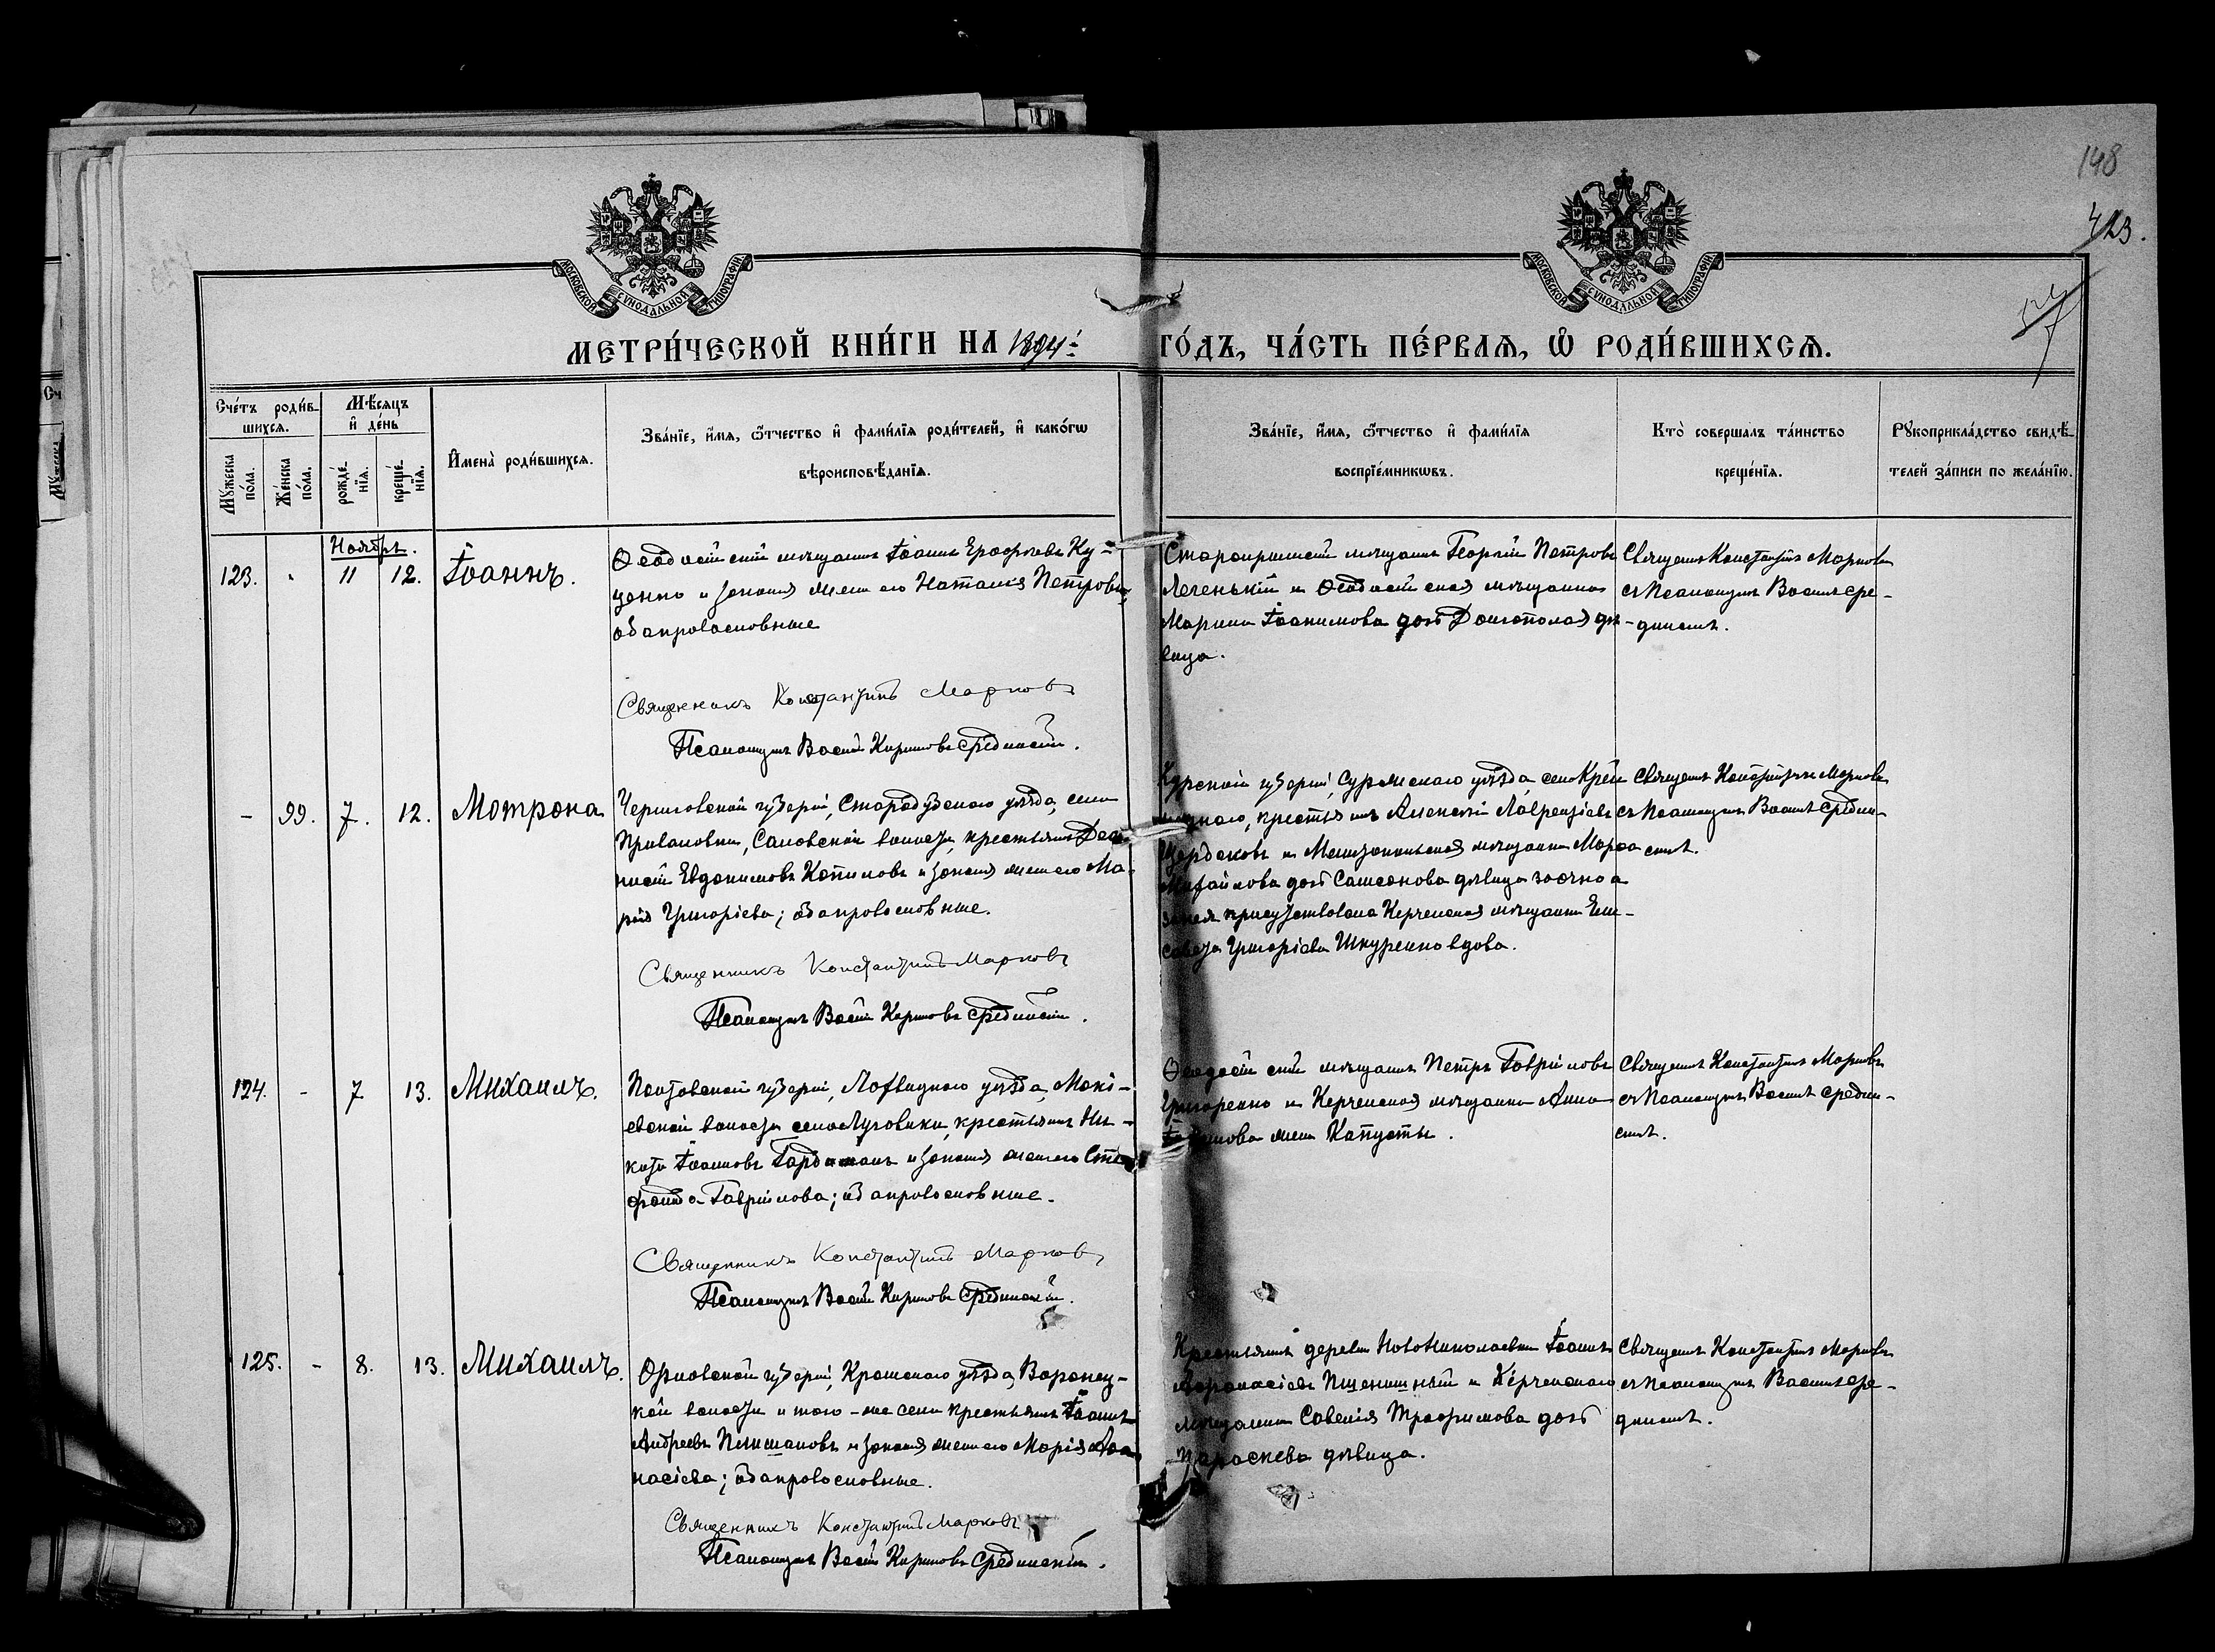 148
423.
МОСКОВСКОЙ СѴНОДАЛЬНОЙ ТИПОГРАФІИ
МОСКОВСКОЙ СѴНОДАЛЬНОЙ ТИПОГРАФІИ
МЕТРИ́ЧЕСКОЙ КНИ́ГИ НА 1894й
ГО́ДЪ, ЧА́СТЬ ПЕ́РВАѦ, Ѡ҆ РОДИ́ВШИХСѦ.
Сче́тъ роди́в-
шихсѧ.
Мꙋ́жеска по́ла.
Же́нска по́ла.
Мѣ́сѧцъ
и҆ де́нь
рожде́-нїѧ.
креще́-нїѧ.
И҆мена̀ роди́вшихсѧ.
Зва́нїе, и҆́мѧ, ѻ҆́тчество и҆ фами́лїѧ роди́телей, и҆ како́гѡ
вѣроисповѣ́данїѧ.
Зва́нїе, и҆́мѧ, ѻ҆́тчество и҆ фами́лїѧ
воспрїе́мникѡвъ.
Кто̀ соверша́лъ та́инство
креще́нїѧ.
Рꙋкоприкла́дство свидѣ́-
телей за́писи по жела́нїю.
Ноябрь.
123. 11 12. Іоаннъ.
Ѳеодосійскій мѣщанинъ Іоаннъ Ерофѣевъ Ку-
ценко и законная жена его Наталія Петрова;
оба православные
Священникъ Константинъ Марковъ
Псаломщикъ Васил Кириловъ Срединскій.
мѣщанинъ Георгій Петровъ
Легенькій и Ѳеодосійская мѣщанка
Марина Іоакимова дочь дѣ-
вица.
Священникъ Константинъ Марковъ
съ Псаломщик. Васил. Сре-
динскимъ.
- 99. 7. 12. Мотрона
Черниговской губерніи, Стародубскаго уѣзда, села
волости, крестьянинъ
Евдокимовъ Копиловъ и законная жена его Ма-
рія Григорьева; оба православные.
Священникъ Константинъ Марковъ
Псаломщикъ Васил Кириловъ Срединскій.
Курской губерніи, уѣзда, село
крестьянинъ Алексѣй Лаврентіевъ
Щербаковъ и Мелитопольская мѣщанка Марѳа
Михайлова дочь Самсонова дѣвица заочно а
за нея присутствовала Керченская мѣщанка Ели-
савета Григоріева Шкуренко вдова.
Священникъ Константинъ Марковъ
съ Псаломщик. Васил. Средин-
скимъ.
124. - 7 13. Михаилъ.
Полтавской губерніи, Лохвицкаго уѣзда,
волости села Луговики, крестьянинъ Ни-
кита Іоанновъ и законная жена его Сте-
фанида Гавріилова; оба православные.
Священникъ Константинъ Марковъ
Псаломщикъ Васил Кириловъ Срединскій.
Ѳеодосійскій мѣщанинъ Петръ Гавріиловъ
Григоренко и Керченская мѣщанка Анна
жена Капусты.
Священникъ Константинъ Марковъ
съ Псаломщик. Васил. Средин-
скимъ.
125. - 8. 13. Михаилъ.
Орловской губерніи, Кромскаго уѣзда, Воронец-
кой волости и того-же села крестьянинъ Іоаннъ
Андреевъ и законная жена его Марія Аѳа-
насіева; оба православные.
Священникъ Константинъ Марковъ
Псаломщикъ Васил Кириловъ Срединскій.
Крестьянинъ деревни Новониколаевки Іоаннъ
Аѳанасіевъ Пшеничный и Керченскаго
мѣщанина Савелія Трофимова дочь
Параскева дѣвица.
Священникъ Константинъ Марковъ
съ Псаломщик. Васил. Сре-
динскимъ.